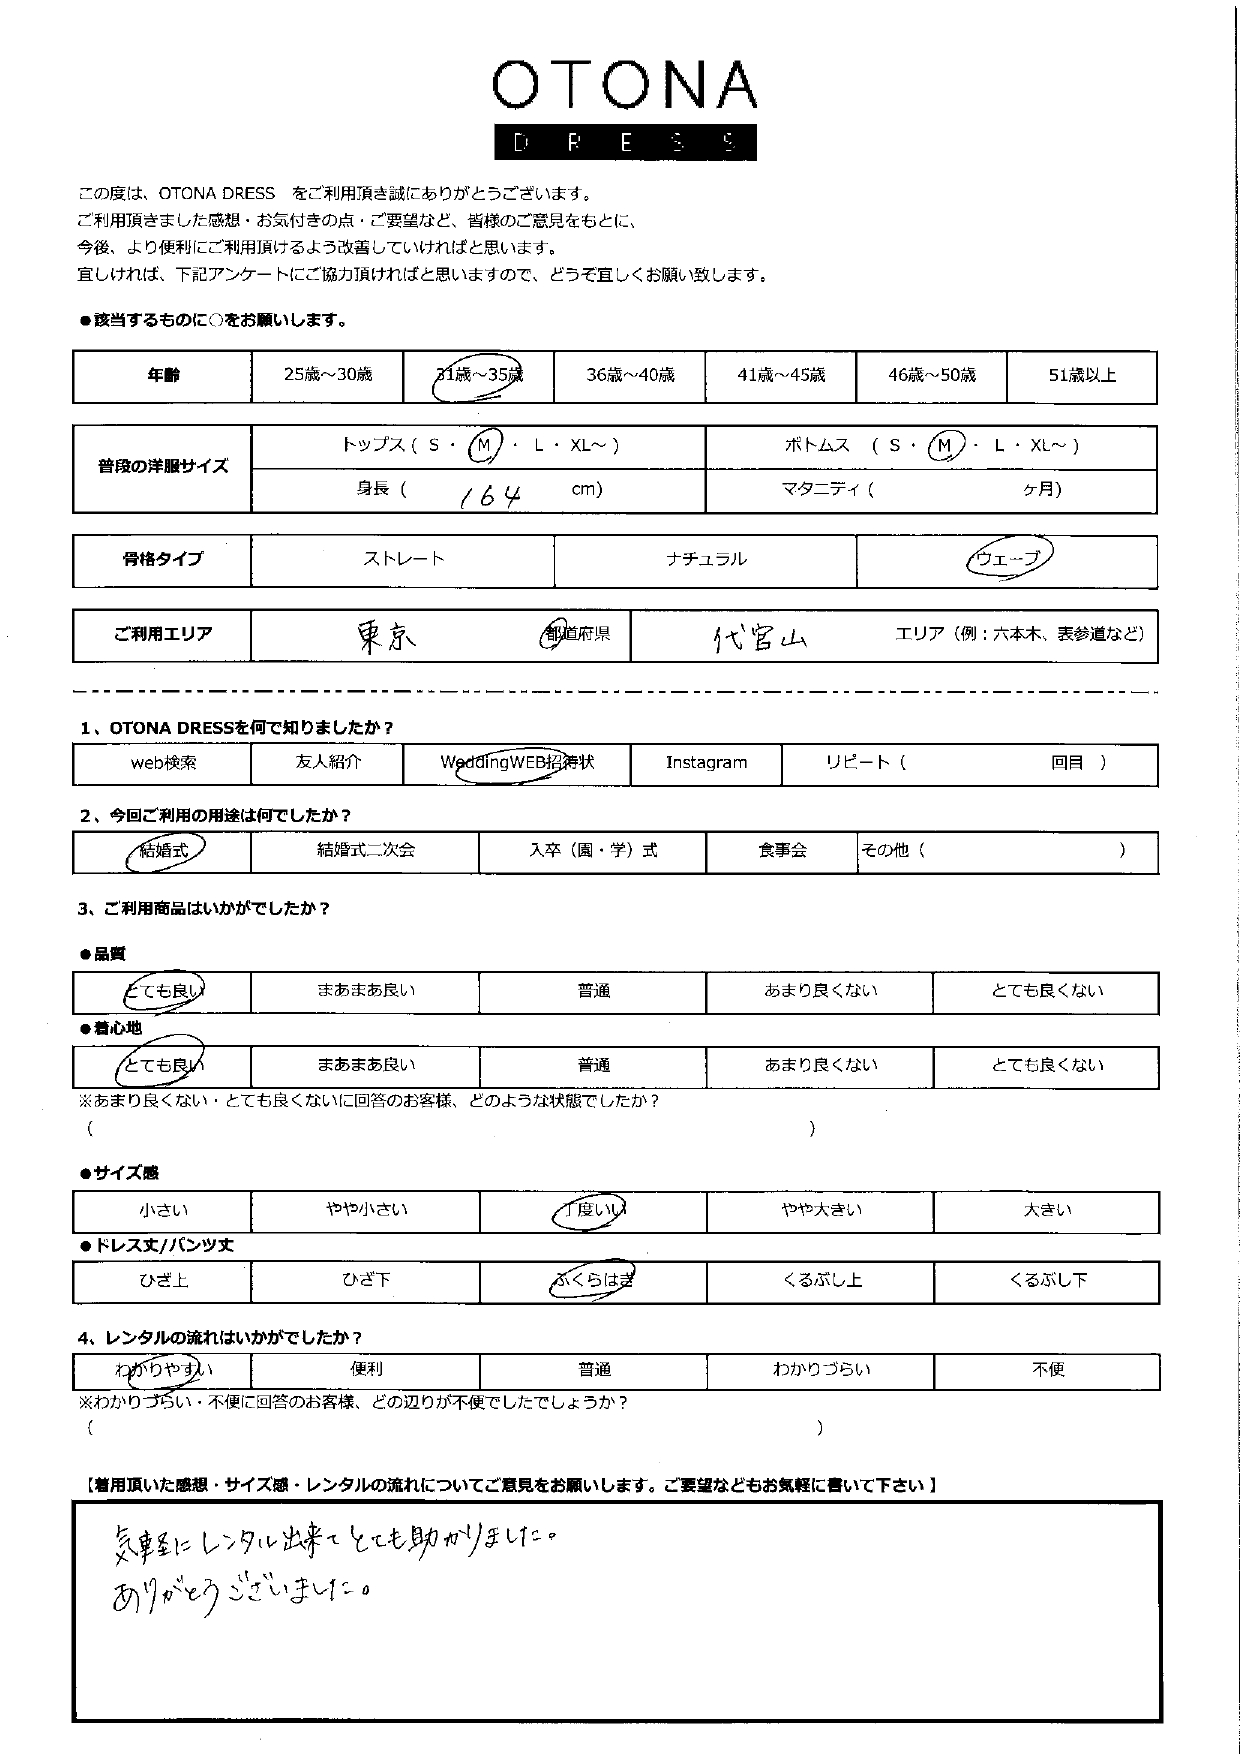 OTONA
DRESS
この度は、OTONA DRESS　をご利用頂き誠にありがとうございます。
ご利用頂きました感想・お気付きの点・ご要望など、皆様のご意見をもとに、
今後、より便利にご利用頂けるよう改善していければと思います。
宜しければ、下記アンケートにご協力頂ければと思いますので、どうぞ宜しくお願い致します。
●該当するものに○をお願いします。
年齢 25歳～30歳 31歳～35歳 36歳～40歳 41歳～45歳 46歳～50歳 51歳以上
普段の洋服サイズ トップス ( S ・ M ・ L ・ XL～ ) ボトムス ( S ・ M ・ L ・ XL～ )
身長 ( 164 cm) マタニティ ( ヶ月)
骨格タイプ ストレート ナチュラル ウェーブ
ご利用エリア 東京 都道府県 代官山 エリア（例：六本木、表参道など）
1、OTONA DRESSを何で知りましたか？
web検索 友人紹介 WeddingWEB招待状 Instagram リピート（ 回目 ）
2、今回ご利用の用途は何でしたか？
結婚式 結婚式二次会 入卒（園・学）式 食事会 その他（ ）
3、ご利用商品はいかがでしたか？
●品質
とても良い まあまあ良い 普通 あまり良くない とても良くない
●着心地
とても良い まあまあ良い 普通 あまり良くない とても良くない
※あまり良くない・とても良くないに回答のお客様、どのような状態でしたか？
（ ）
●サイズ感
小さい やや小さい 丁度いい やや大きい 大きい
●ドレス丈/パンツ丈
ひざ上 ひざ下 ふくらはぎ くるぶし上 くるぶし下
4、レンタルの流れはいかがでしたか？
わかりやすい 便利 普通 わかりづらい 不便
※わかりづらい・不便に回答のお客様、どの辺りが不便でしたでしょうか？
（ ）
【着用頂いた感想・サイズ感・レンタルの流れについてご意見をお願いします。ご要望などもお気軽に書いて下さい】
気軽にレンタル出来てとても助かりました。
ありがとうございました。